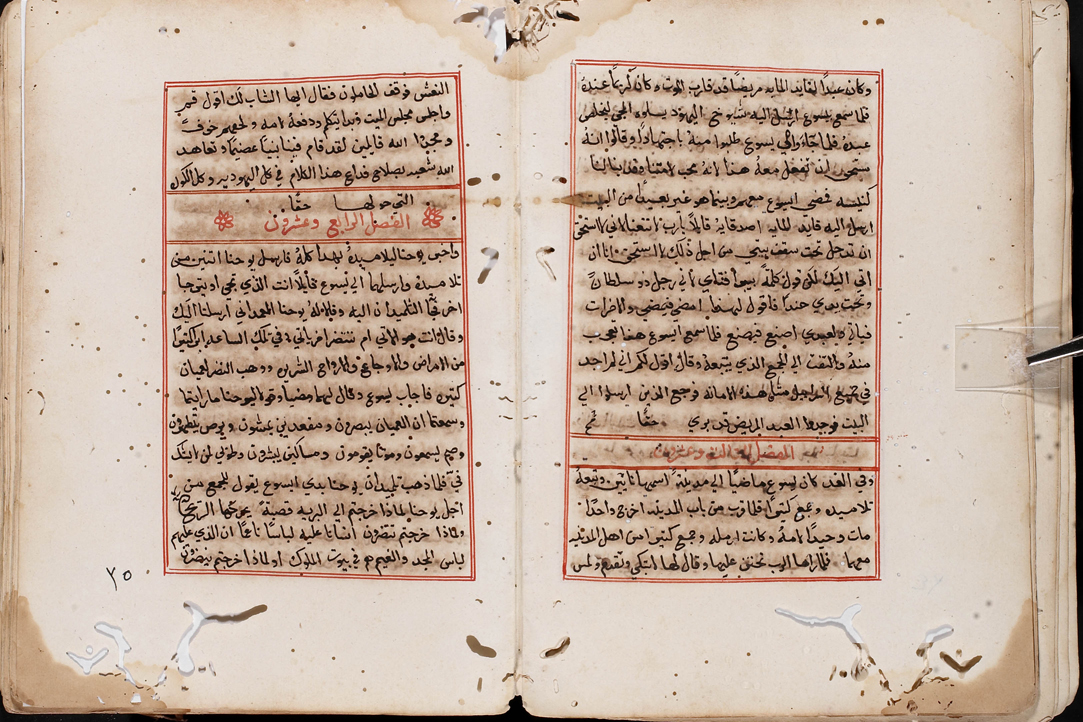 وكان عبداً لقايد المايه مريضاً قد قارب الموت وكان كريماً عنده
فلما سمع يسوع ارسل اليه شيوخ اليهود يسلوه المجي ليخلص
عبده فلما جاءوا الي يسوع طلبوا منه باجتهاد وقالوا انه
مستحق ان تفعل معه هذا لانه محب لامتنا وقد بنا لنا
كنيسه فمضي ايسوع معهم وبينما هو غير بعيداً من البيت
ارسل اليه قايد المايه اصدقايه قايلاً يارب لا تتعنا لاني لا استحق
ان تدخل تحت سقف بيتي من اجل ذلك لم استحق انا ان
اتي اليك لكن قول كلمه يبرا فتاي لاني رجل ذو سلطاناً
وتحت يدي جنداً فاقول لهذا امضي فيمضي ولاخر ات
فياتي ولعبدي اصنع فيصنع فلما سمع ايسوع هذا تعجب
منه والتفت الي الجمع الذي يتبعه وقال اقول لكم اني لم اجد
في جميع اسراييل مثل هذه الامانه فرجع الذين ارسلوا الي
البيت فوجدوا العبد المريض قد بري حقاً
الفصل الثالث وعشرون
وفي الغد كان يسوع ماضياً الي مدينه اسمها نايين وتبعه
تلاميده وجمع كتيراً فلما قرب من باب المدينه اخرج واحداً
مات وحيداً لامه وكانت ارمله وجمع كتير من اهل المدينه
معها فلما راها الرب تحنن عليها وقال لها لا تبكي وتقدم ولمس
النعش فوقف الحاملون فقال ايها الشاب لك اقول قم
واجلس مجلس الميت وبدا يتكلم ودفعه لامه ولحقهم خوفً
ومجدوا الله قايلين لقد قام فينا نبياً عضيماً وتعاهد
الله شعبه بصلاح فداع هذا الكلام في كل اليهوديه وكل الكور
التي حولها حقاً
الفصل الرابع وعشرون
واخبر يوحنا تلاميدهُ بهدا كله فارسل يوحنا اتنين من
تلاميدهُ وارسلهما الي يسوع قايلاً انت الذي تجي او نترجا
اخر فجا التلميدان اليه وقالا له يوحنا المعمداني ارسلنا اليك
وقال انت هو الاتي ام ننتضر اخر ياتي في تلك الساعه ابرا كتيراً
من الامراض والاوجاع والارواح الشريره ووهب النضر لعميان
كتيره فاجاب يسوع وقال لهما امضيا وقولا ليوحنا ما رايتما
وسمعتما ان العميان يبصرون ومقعدين يمشون وبرص يتطهرون
وصم يسمعون وموتا يقومون ومساكين يبشرون وطوبي لمن لا يشك
في فلما ذهب تلميدان يوحنا بدي ايسوع يقول للجمع من
اجل يوحنا لماذا خرجتم الي البريه قصبهً يحركها الريح
ولماذا خرجتم تنضرون انساناً عليه لباساً ناعماً ان الذي عليهم
لباس المجد والنعيم هم في بيوت الملوك او لماذا خرجتم تنضرون
٢٥